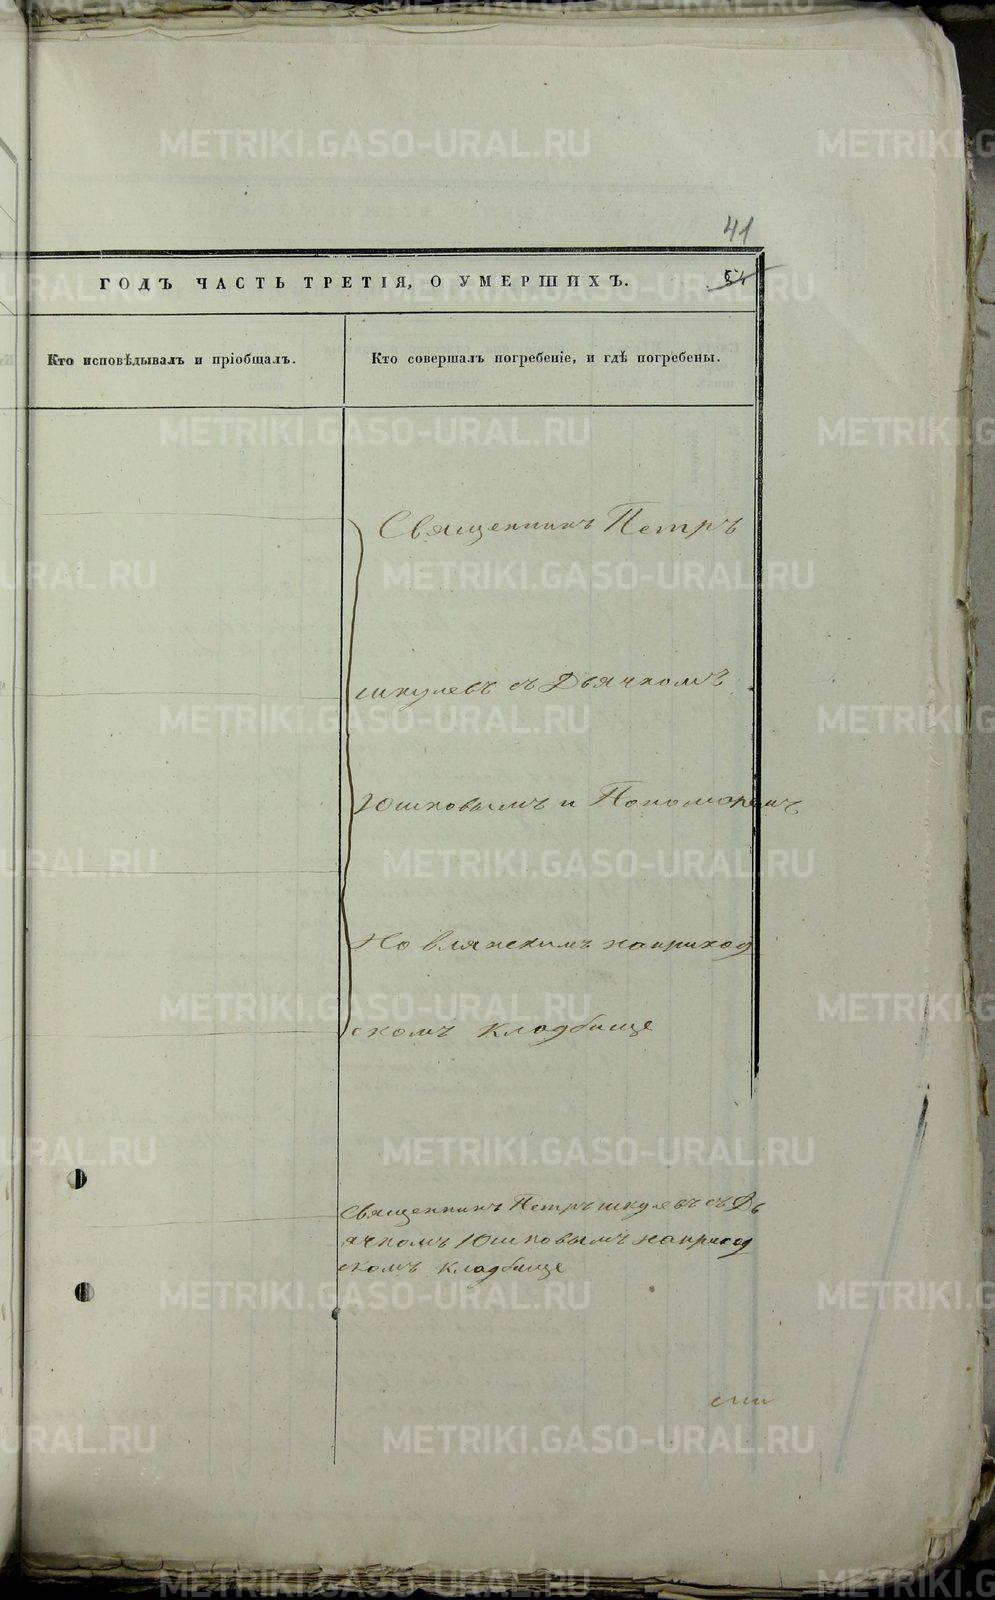 41
ГОДЪ ЧАСТЬ ТРЕТІЯ, О УМЕРШИХЪ.
54
Кто исповѣдывалъ и пріобщалъ.
Кто совершалъ погребеніе, и гдѣ погребены.
Священникъ Петръ
шкулевъ съ Дьячкомъ
Юшковымъ и Пономаремъ
Новлянскимъ наприход
скомъ кладбище
Священникъ Петръ шкулевъ съ Дь
ячкомъ Юшковымъ наприход
скомъ кладбище
METRIKI.GASO-URAL.RU